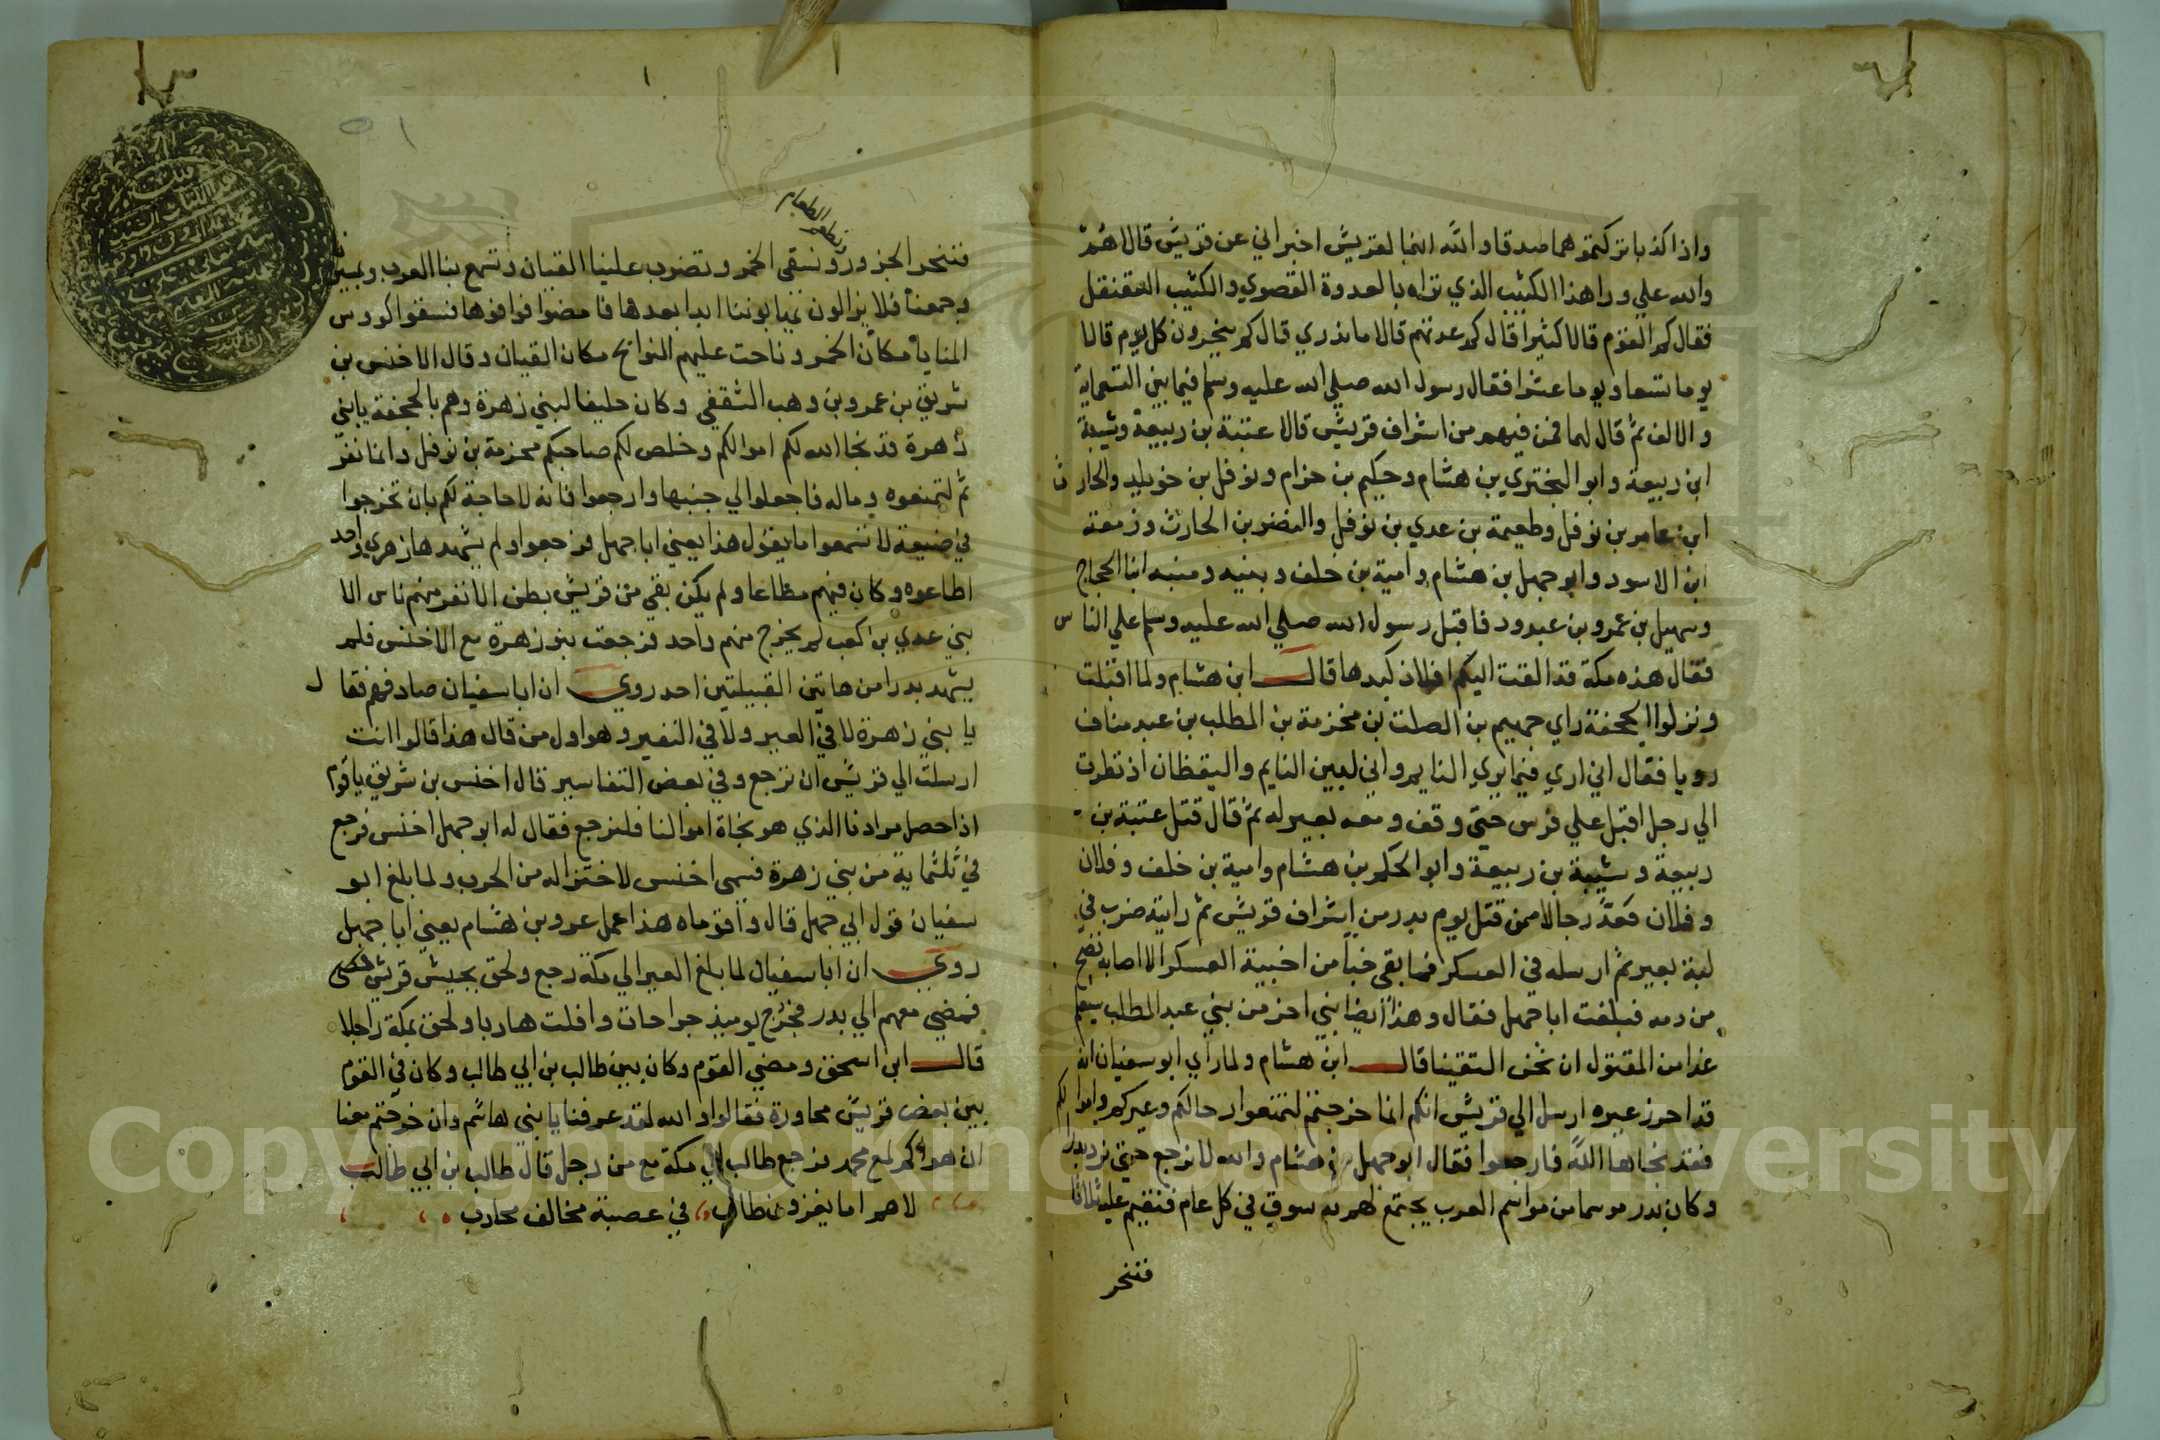 واذا كذباتركتموهما صدقا والله انهما لقريش اخبراني عن قريش قالا هم
والله علي ورا هذا الكثيب الذي تراه بالعدوة القصوي والكثيب العقنقل
فقال كم القوم قالا كثير قال كم عدتهم قالا ما ندري قال كم ينحرون كل يوم قالا
يوما تسعا ويوما عشرا فقال رسول الله صلي الله عليه وسلم فيما بين التسعماية
والالف ثم قال لهما فمن فيهم من اشراف قريش قالا عتبة بن ربيعة وشيبة
ابن ربيعة وابو البختري بن هشام وحكيم بن حزام ونوفل بن خويلد والحارث
ابن عامر بن نوفل وطعيمة بن عدي بن نوفل والنضر بن الحارث وزمعة
ابن الاسود وابو جهل بن هشام وامية بن خلف ونبيه ومنبه ابنا الحجاج
وسهيل بن عمرو بن عبد ود فاقبل رسول الله صلي الله عليه وسلم علي الناس
فقال هذه مكة قد القت اليكم افلاذ كبدها قال ابن هشام ولما اقبلت
ونزلوا الجحفة راي جهيم بن الصلت بن مخرمة بن المطلب بن عبد مناف
رويا فقال اني اري فيما يري النايم واني لبين النايم واليقظان اذ نظرت
الي رجل اقبل علي فرس حتي وقف ومعه بعير له ثم قال قتل عتبة بن
ربيعة وشيبة بن ربيعة وابو الحكم بن هشام وامية بن خلف وفلان
وفلان فعد رجالا ممن قتل يوم بدر من اشراف قريش ثم رايته ضرب في
لبة بعيره ثم ارسله في العسكر فما بقي خبا من اخبية العسكر الا اصابه نضح
من دمه فبلغت ابا جهل فقال وهذا ايضا نبي اخر من بني عبد المطلب سيعلم
غدا من المقتول ان نحن التقينا قال ابن هشام ولما راي ابو سفيان انه
قد احرز عيره ارسل الي قريش انكم انما خرجتم لتمنعوا رحالكم وعيركم واموالكم
فقد نجاها الله فارجعوا فقال ابو جهل بن هشام والله لا نرجع حتي نرد بدرا
وكان بدر موسما من مواسم العرب يجتمع لهم به سوق في كل عام فنقيم عليه ثلاثا
فننحر
ونطعم الطعام
فننحر الجزور ونسقي الخمر وتضرب علينا القيان وتسمع بنا العرب وبمسيرنا
وجمعنا فلا يزالون يهابوننا ابدا بعدها فامضوا فوافوها فسقوا كووس
المنايا مكان الخمر وناحت عليهم النوائح مكان القيان وقال الاخنس بن
شريق بن عمرو بن وهب الثقفي وكان حليفا لبني زهرة وهم بالجحفة يا بني
زهرة قد نجا الله لكم اموالكم وخلص لكم صاحبكم مخرمة بن نوفل وانما نفر
تم لتمنعوه وماله فاجعلوا لي جنبها وارجعوا فانه لا حاجة لكم بان تخرجوا
في ضيعة لا تسمعوا ما يقول هذا يعني ابا جهل فرجعوا ولم يشهدها زهري واحد
اطاعوه وكان فيهم مطاعا ولم يكن بقي من قريش بطن الا نفر منهم ناس الا
بني عدي بن كعب لم يخرج منهم واحد فرجعت بنو زهرة مع الاخنس فلم
يشهد بدرا من هاتين القبيلتين احد روي ان ابا سفيان صادفهم فقال
يا بني زهرة لا في العير ولا في النفير وهو اول من قال هذا قالوا انت
ارسلت الي قريش ان نرجع وفي بعض التفاسير قال اخنس بن شريق يا قوم
اذا حصل مرادنا الذي هو نجاة اموالنا فلنرجع فقال له ابو جهل اخنس فرجع
في ثلثماية من بني زهرة فسمي اخنس لاختزاله من الحرب ولما بلغ ابو
سفيان قول ابي جهل قال واقوماه هذا عمل عمرو بن هشام يعني ابا جهل
روي ان ابا سفيان لما بلغ العير الي مكة رجع ولحق بجيش قريش
فمضي معهم الي بدر فجرح يوميذ جراحات وافلت هاربا ولحق بمكة راجلا
قال ابن اسحق ومضي القوم وكان بين طالب بن ابي طالب وكان في القوم
بين بعض قريش محاورة فقالوا والله لقد عرفنا يا بني هاشم وان خرجتم معنا
ان هواكم لمع محمد فرجع طالب الي مكة مع من رجل قال طالب بن ابي طالب
لا هم اما يغزون طالب في عصبة مخالف محارب